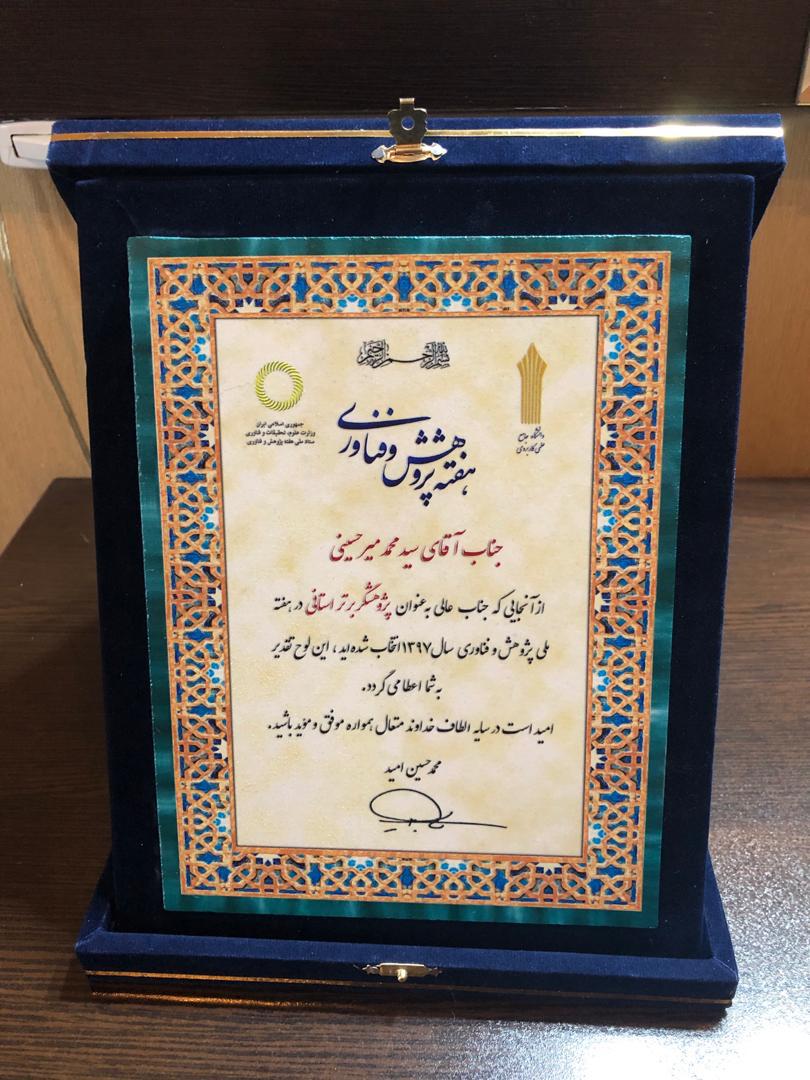 بسم الله الرحمن الرحیم
دانشگاه جامع
علمی کاربردی
جمهوری اسلامی ایران
وزارت علوم، تحقیقات و فناوری
ستاد ملی هفته پژوهش و فناوری
هفته پژوهش و فناوری
جناب آقای سید محمد میرحسینی
از آنجایی که جناب عالی به عنوان پژوهشگر برتر استانی در هفته
ملی پژوهش و فناوری سال ۱۳۹۷ انتخاب شده اید ، این لوح تقدیر
به شما اعطا می گردد.
امید است در سایه الطاف خداوند متعال همواره موفق و مؤید باشید.
محمد حسین امید